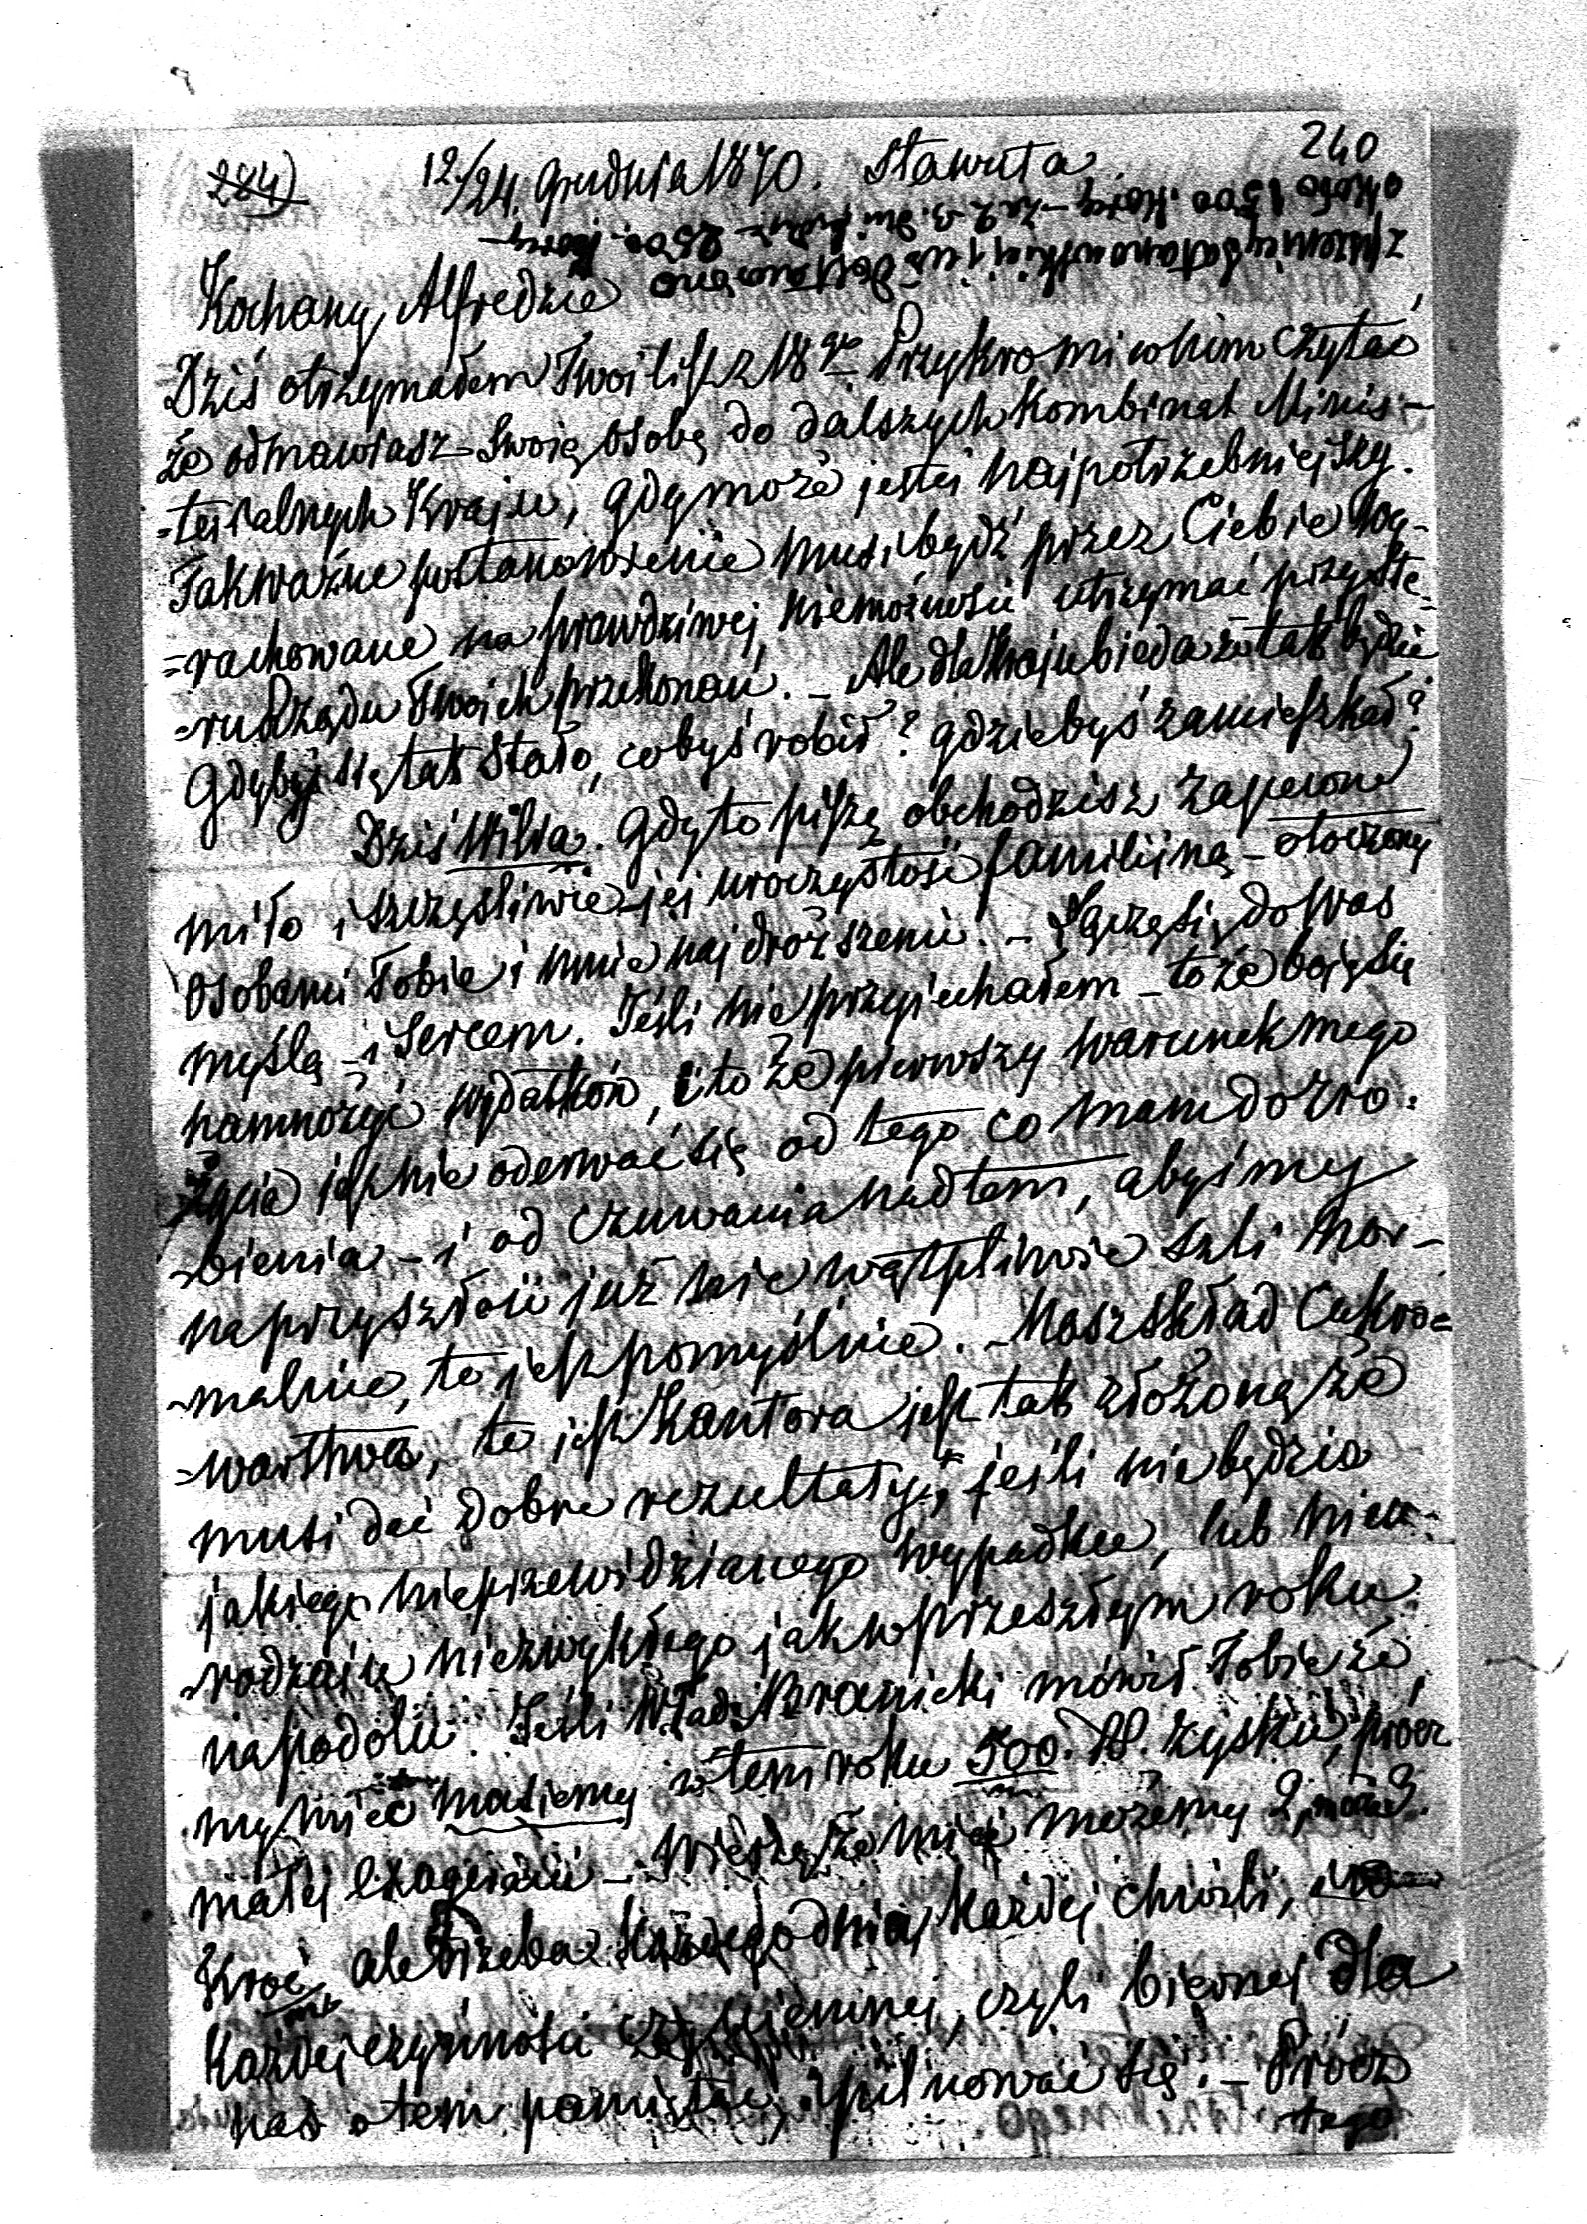 284)
240
12/24. Grudnia 1870. Sławuta
z pszenicy Satanowskiej już dostawiono
około 1500. Korcy – za 2-3. dni będzie 2500. Korcy –
Kochany Alfredzie
Dziś otrzymałem Twój list z 18go Przykro mi w nim czytać
że odmawiasz Swoią osobę do dalszych Kombinat Minis-
-terialnych Kraju, gdy może jesteś najpotrzebniejszy.
Tak ważne postanowienie musi bydź przez Ciebie wy-
=rachowane na prawdziwej niemożności utrzymać przy ste-
=ru Rządu Twoich przekonań. – Ale dla Kraju bieda że tak będzie
Gdyby się tak stało, co byś robił? gdzie byś zamieszkał?
Dziś Wilia. Gdy to piszę obchodzisz zapewne
miło i szczęśliwie jej uroczystość familijną – otoczony
osobami Tobie i mnie najdroższemi. – Łączę się do Was
myślą – i Sercem. Jeśli nie przyjechałem – to że boję się
namnożyć wydatków, i to że pierwszy warunek mego
Życia jest nie oderwać się od tego co mam do zro-
-bienia – i od czuwania nad tem, abyśmy
na przyszłość już nie wątpliwie szli nor-
-malnie, to jest pomyślnie. – Masz skład Cukro=
=warstwa, to jest Kantora jest tak złożoną że
musi dać dobre rezultaty, jeśli nie będzie
jakiego nieprzewidzianego wypadku, lub nieu-
-rodzaju niezwykłego jak w przeszłym roku
na Podolu. Jeśli Wład: Branicki mówił Tobie że
my mieć masiemy w tem roku 500. zysku, prócz
małej – Wierzę że mieć możemy 2, 3.
Kroć, ale trzeba każdego dnia, każdej chwili,
Każdej czynności czyli biernej dla
nas o tem pamiętać, i pilnować się. – Prócz
tego